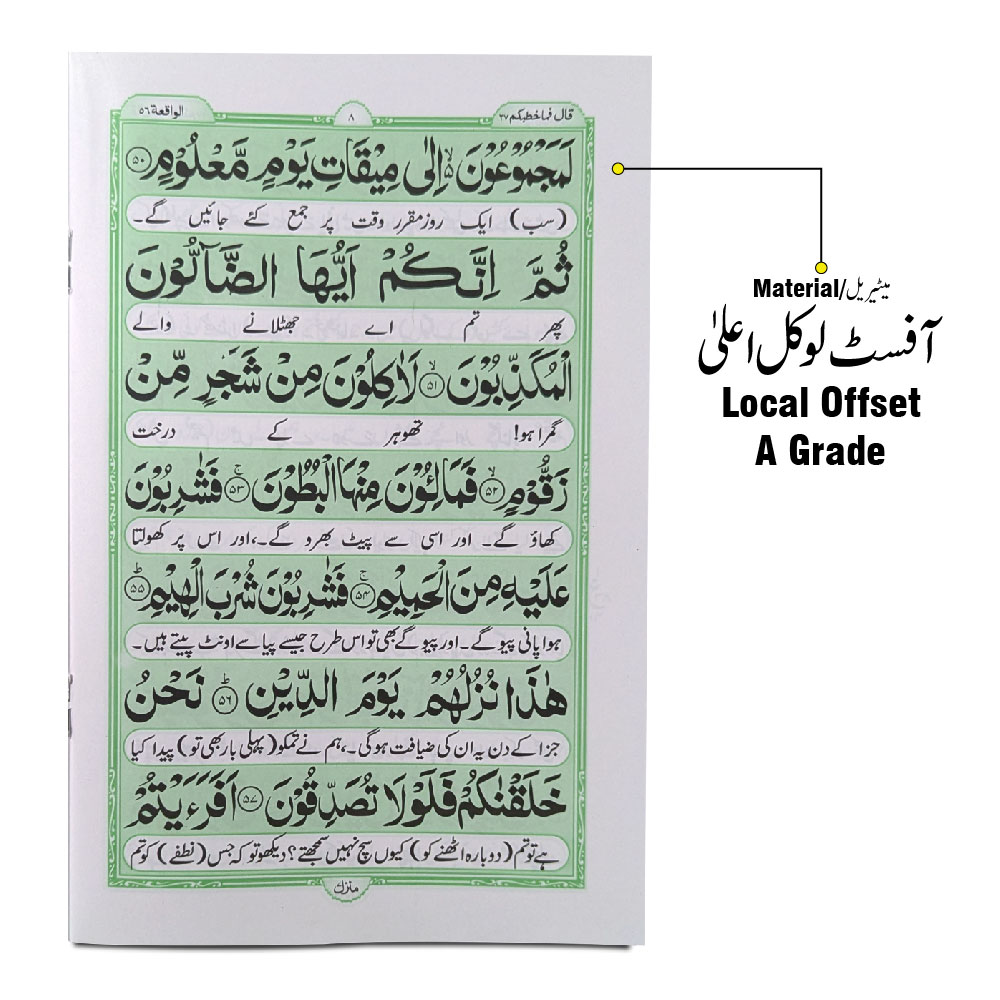 قال فما خطبکم ٢٧
٨
الواقعة ٥٦
لَمَجْمُوْعُوْنَ ۙ۬ اِلٰى مِيْقَاتِ يَوْمٍ مَّعْلُوْمٍ ﴿٥٠﴾
(سب) ایک روز مقرر وقت پر جمع کئے جائیں گے۔
ثُمَّ اِنَّكُمْ اَيُّهَا الضَّآلُّوْنَ
پھر تم اے جھٹلانے والے
الْمُكَذِّبُوْنَ ۙ﴿٥١﴾ لَاٰكِلُوْنَ مِنْ شَجَرٍ مِّنْ
گمراہو! تھوہر کے درخت
زَقُّوْمٍ ۙ﴿٥٢﴾ فَمَالِـُٔوْنَ مِنْهَا الْبُطُوْنَ ۚ﴿٥٣﴾ فَشٰرِبُوْنَ
کھاؤ گے۔ اور اسی سے پیٹ بھرو گے۔، اور اس پر کھولتا
عَلَيْهِ مِنَ الْحَمِيْمِ ۚ﴿٥٤﴾ فَشٰرِبُوْنَ شُرْبَ الْهِيْمِ ؕ﴿٥٥﴾
ہوا پانی پیو گے۔ اور پیو گے بھی تو اس طرح جیسے پیاسے اونٹ پیتے ہیں۔
هٰذَا نُزُلُهُمْ يَوْمَ الدِّيْنِ ؕ﴿٥٦﴾ نَحْنُ
جزا کے دن یہ ان کی ضیافت ہوگی۔، ہم نے تمکو (پہلی بار بھی تو) پیدا کیا
خَلَقْنٰكُمْ فَلَوْلَا تُصَدِّقُوْنَ ﴿٥٧﴾ اَفَرَءَيْتُمْ
ہے تو تم (دوبارہ اٹھنے کو) کیوں سچ نہیں سمجھتے؟ دیکھو تو کہ جس (نطفے) کو تم
منزل
Material/میٹیریل
آفسٹ لوکل اعلیٰ
Local Offset
A Grade